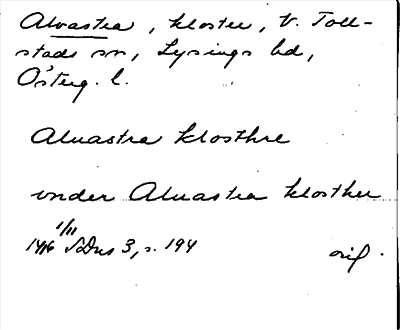 Alvastra, kloster, V. Toll-
stads sn, Lysings hd,
Österg. l.
Aluastra klosthre
vnder Aluastra klosther
1/11
1416 SvDns 3, s. 194 orig.